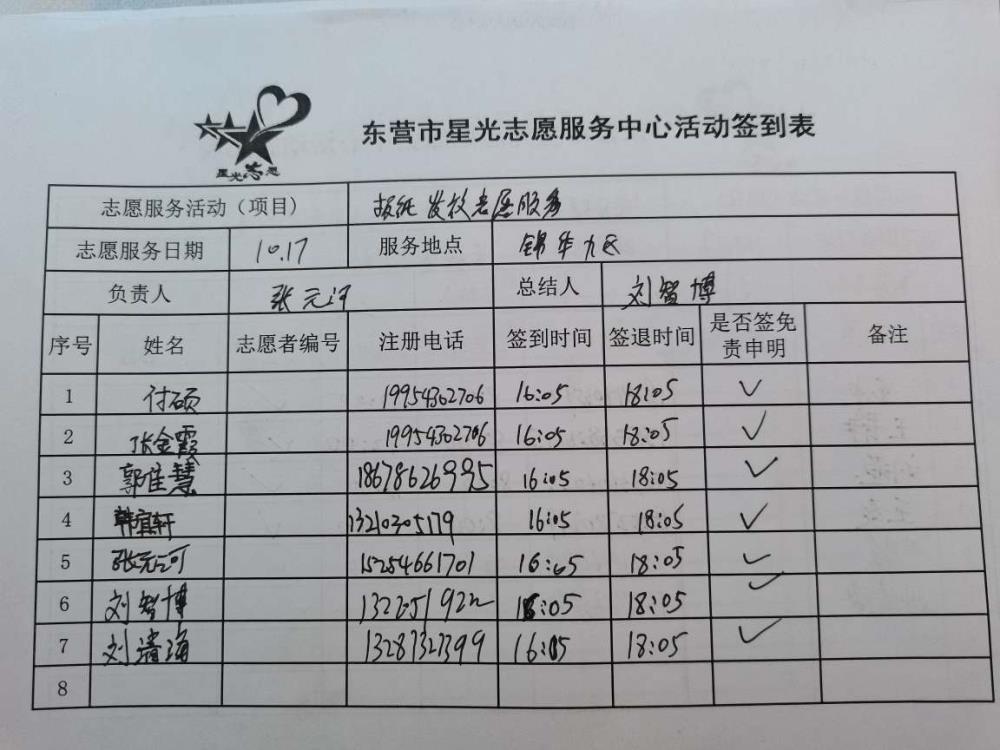 星光志愿
东营市星光志愿服务中心活动签到表
志愿服务活动（项目） 报纸发放志愿服务
志愿服务日期 10.17 服务地点 锦华九区
负责人 张元河 总结人 刘智博
序号 姓名 志愿者编号 注册电话 签到时间 签退时间 是否签免责申明 备注
1 付硕 19954302706 16:05 18:05 ✓
2 张金霞 19954302706 16:05 18:05 ✓
3 郭佳慧 18678626995 16:05 18:05 ✓
4 韩宜轩 13210305179 16:05 18:05 ✓
5 张元河 15254661701 16:05 18:05 ✓
6 刘智博 16:05 18:05 ✓
7 刘清海 13287327399 16:05 18:05 ✓
8